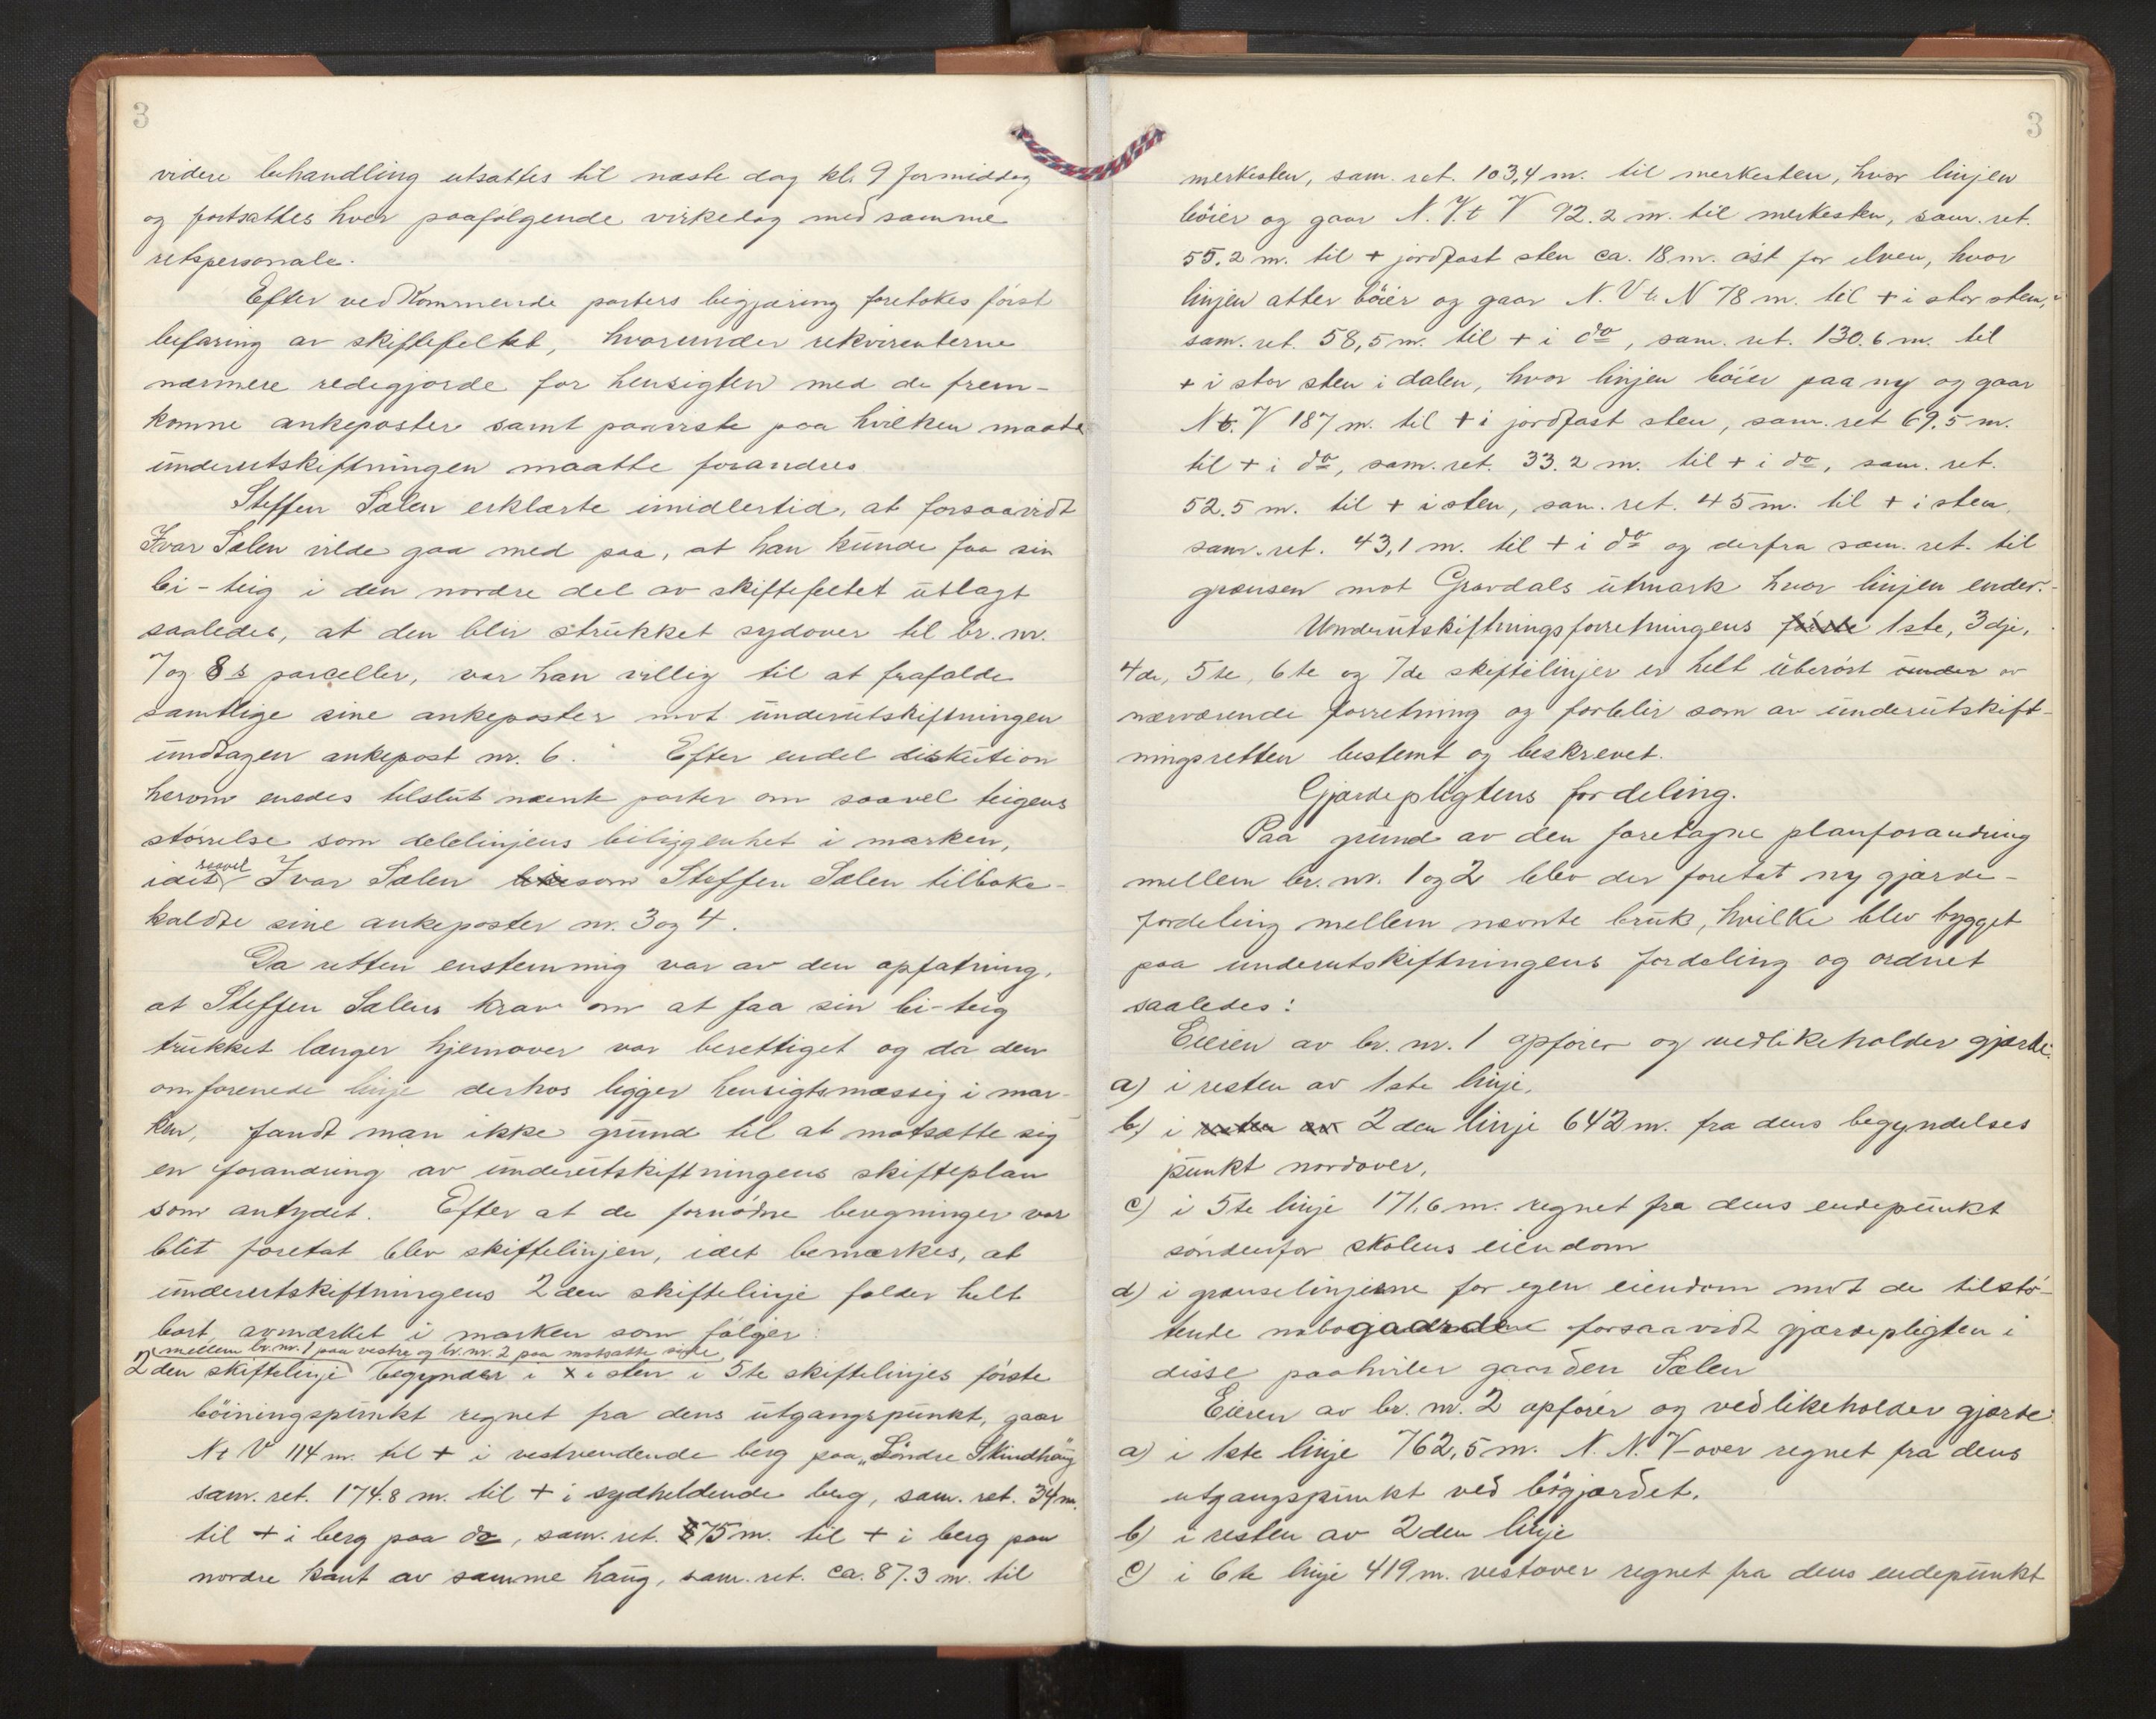 3
videre behandling utsattes til næste dag kl. 9 formiddag
og fortsættes hver paafølgende virkedag med samme
retspersonale.
Efter vedkommende parters begjæring foretokes først
befaring av skiftefeltet, hvorunder rekvirenterne
nærmere redegjorde for hensigten med de frem-
komne ankeposter samt paaviste paa hvilken maate
underutskiftningen maatte forandres
Steffen Sælen erklærte imidlertid, at forsaavidt
Ivar Sælen vilde gaa med paa, at han kunde faa sin
bi-teig i den nordre del av skiftefeltet utlagt
saaledes, at den blir strukket sydover til br. nr.
7 og 8s parceller, var han villig til at frafalde
samtlige sine ankeposter mot underutskiftningen
undtagen ankepost nr. 6. Efter endel diskution
herom enedes tilslut nævnte parter om saavel teigens
størrelse som delelinjens beliggenhet i marken,
idet saavel Ivar Sælen som Steffen Sælen tilbake-
kaldte sine ankeposter nr. 3 og 4.
Da retten enstemmig var av den opfatning,
at Steffen Sælens krav om at faa sin bi-teig
trukket længer hjemover var berettiget og da den
omforenede linje derhos ligger hensigtsmæssig i mar-
ken, fandt man ikke grund til at motsætte sig
en forandring av underutskiftningens skifteplan
som antydet. Efter at de fornødne beregninger var
blit foretat blev skiftelinjen, idet bemærkes, at
underutskiftningens 2den skiftelinje falder helt
bort, avmerket i marken som følger:
mellem br. nr. 1 paa vestre og br. nr. 2 paa motsatte side
2den skiftelinje begynder i x i sten i 5te skiftelinjes første
böiningspunkt regnet fra dens utgangspunkt, gaar
N t V 114 m. til + i vestvendende berg paa „Söndre Skindhaug"
sam. ret. 174.8 m. til + i sydheldende berg, sam. ret. 34 m.
til + i berg paa do, sam. ret. 75 m. til + i berg paa
nordre kant av samme haug, sam. ret. ca. 87.3 m. til
3
merkesten, sam. ret. 103,4 m. til merkesten, hvor linjen
böier og gaar N. V. t V 92.2 m. til merkesten, sam. ret.
55.2 m. til + jordfast sten ca. 18 m. öst for elven, hvor
linjen atter böier og gaar N. V t. N 78 m. til + i stor sten,
sam. ret. 58,5 m. til + i do, sam. ret. 130.6 m. til
+ i stor sten i dalen, hvor linjen böier paa ny og gaar
N t. V 187 m. til + i jordfast sten, sam. ret 69.5 m.
til + i do, sam. ret. 33.2 m. til + i do, sam. ret.
52.5 m. til + i sten, sam. ret. 45 m. til + i sten,
sam. ret. 43,1 m. til + i do og derfra sam. ret. til
grænsen mot Gravdals utmark hvor linjen ender.
Underutskiftningsforretningens første 1ste, 3dje,
4de, 5te, 6te og 7de skiftelinjer er helt uberört under av
nærværende forretning og forblir som av underutskift-
ningsretten bestemt og beskrevet.
Gjærdepligtens fordeling.
Paa grund av den foretagne planforandring
mellem br. nr. 1 og 2 blev der foretat ny gjærde-
fordeling mellem nævnte bruk, hvilke blev bygget
paa underutskiftningens fordeling og ordnet
saaledes:
Eieren av br. nr. 1 opfører og vedlikeholder gjærde:
a) i resten av 1ste linje,
b) i resten av 2den linje 642 m. fra dens begyndelses
punkt nordover,
c) i 5te linje 171,6 m. regnet fra dens endepunkt
söndenfor skolens eiendom
d) i grænselinjerne for egen eiendom mot de tilstö-
tende nabogaarde forsaavidt gjærdepligten i
disse paahviler gaarden Sælen
Eieren av br. nr. 2 opfører og vedlikeholder gjærde:
a) i 1ste linje 762,5 m. N. N. V-over regnet fra dens
utgangspunkt ved bögjærdet.
b) i resten av 2den linje
c) i 6te linje 419 m. vestover regnet fra dens endepunkt